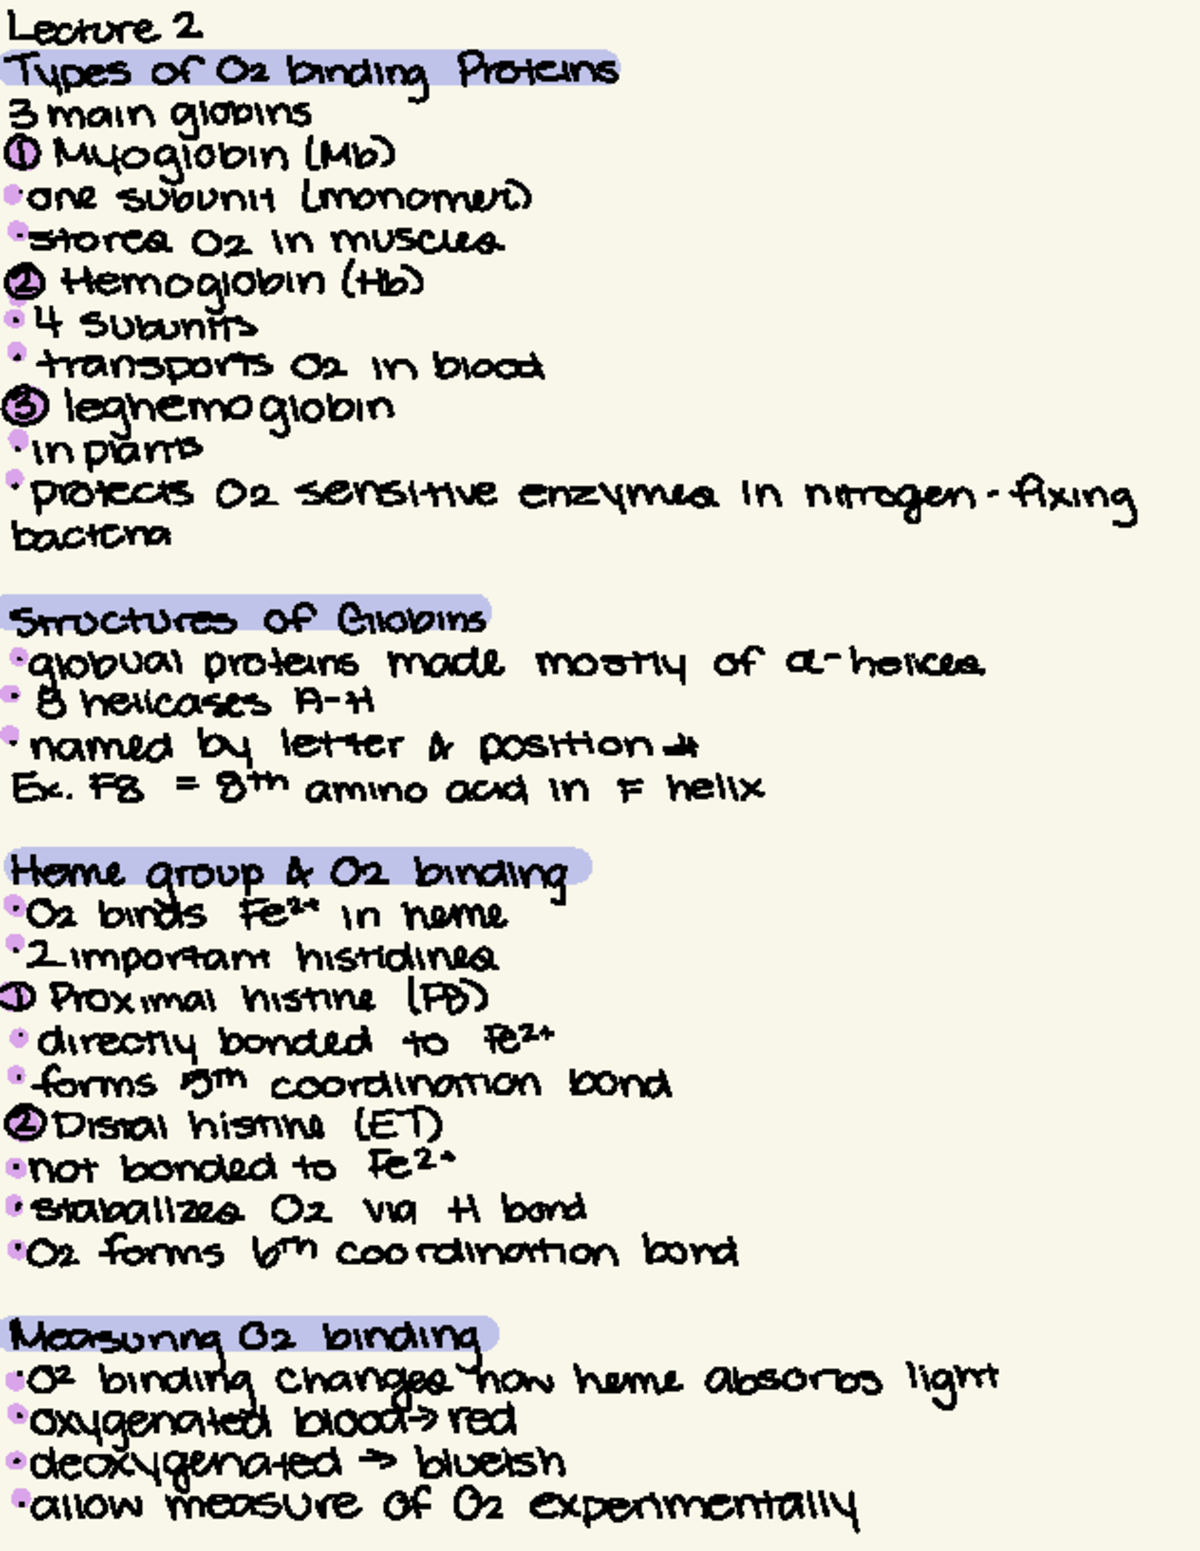 Lecture 2
Types of O2 binding Proteins
3 main globins
① Myoglobin (Mb)
• one subunit (monomer)
• stores O2 in muscles
② Hemoglobin (Hb)
• 4 subunits
• transports O2 in blood
③ leghemoglobin
• in plants
• protects O2 sensitive enzymes in nitrogen-fixing
bacteria
Structures of Globins
• globual proteins made mostly of α-helices
• 8 helicases A-H
• named by letter & position #
Ex. F8 = 8th amino acid in F helix
Heme group & O2 binding
• O2 binds Fe²⁺ in heme
• 2 important histidines
① Proximal histine (F8)
• directly bonded to Fe²⁺
• forms 5th coordination bond
② Distal histine (E7)
• not bonded to Fe²⁺
• stabalizes O2 via H bond
• O2 forms 6th coordination bond
Measuring O2 binding
• O² binding changes how heme absorbs light
• oxygenated blood → red
• deoxygenated → blueish
• allow measure of O2 experimentally